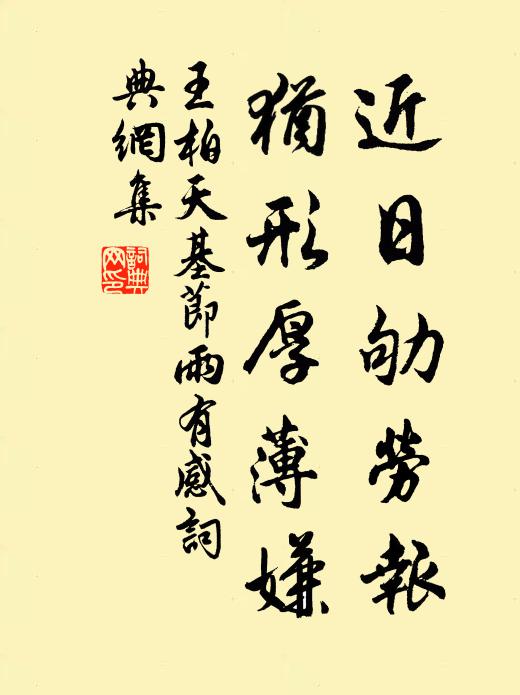 近日劬勞報
猶形厚薄嫌
王柏天基節雨有感詞
典網集
詞典
网印